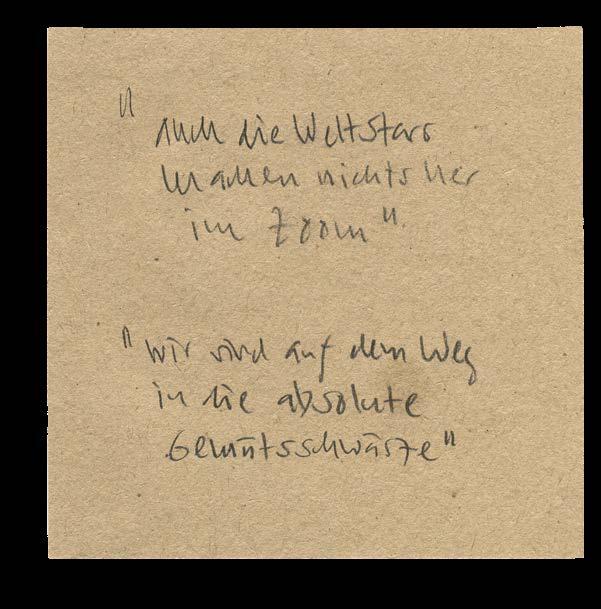 "auch die Weltstars
machen nichts her
im Zoom"
"wir sind auf dem Weg
in die absolute
Gemütsschwärze"